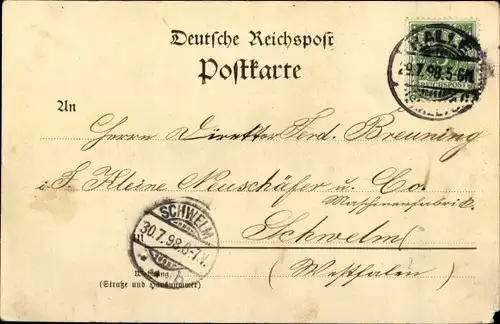 Deutsche Reichspost
Postkarte
HALLE
29.7.98.5-6N.
REICHSPOST
An
Herrn Direktor Ferd. Breuning
i. F. Kleine Neuschäfer u. Co.
Maschinenfabrik
Schwelm
(Westfalen)
SCHWELM
30.7.98. 6-7V.
Wohnung
(Straße und Hausnummer)